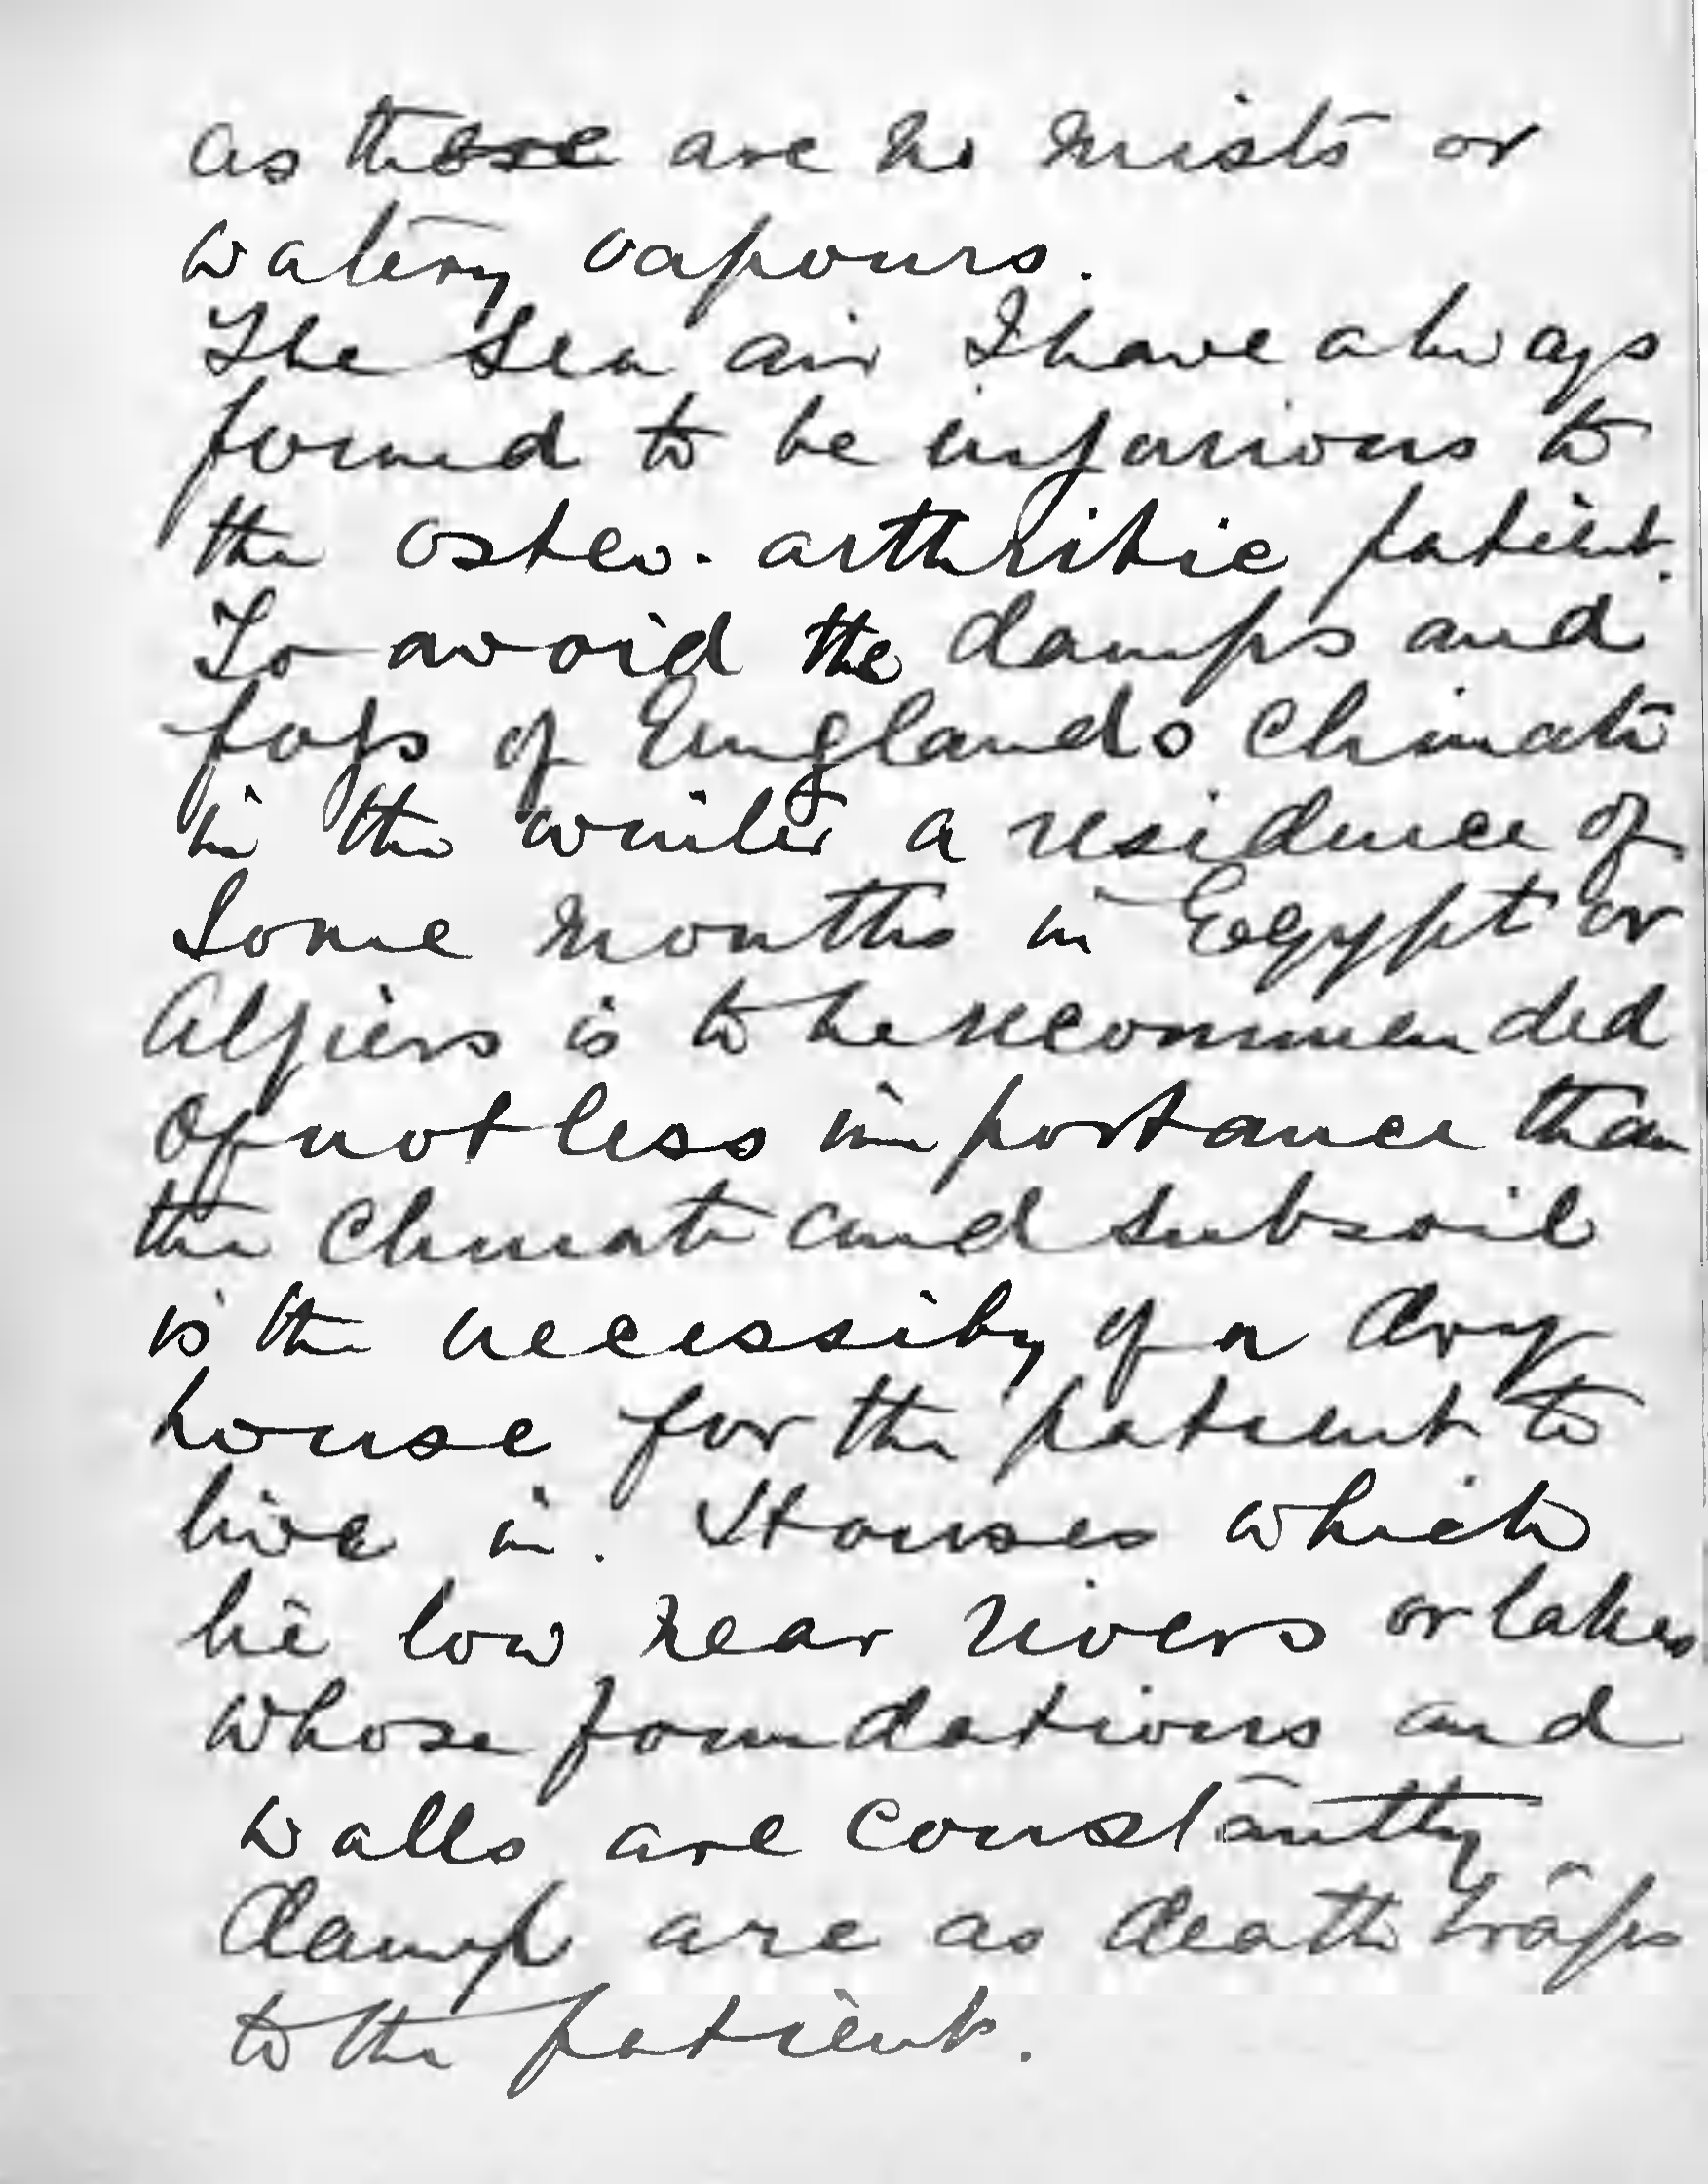 as there are no mists or
watery vapours.
The Sea air I have always
found to be injurious to
the osteo-arthritic patient.
To avoid the damps and
fogs of Englands Climate
in the winter a residence of
Some months in Egypt or
Algiers is to be recommended
Of not less importance than
the Climate and subsoil
is the necessity of a dry
house for the patient to
live in. Houses which
lie low near rivers or lakes
whose foundations and
walls are constantly
damp are as death traps
to the patient.